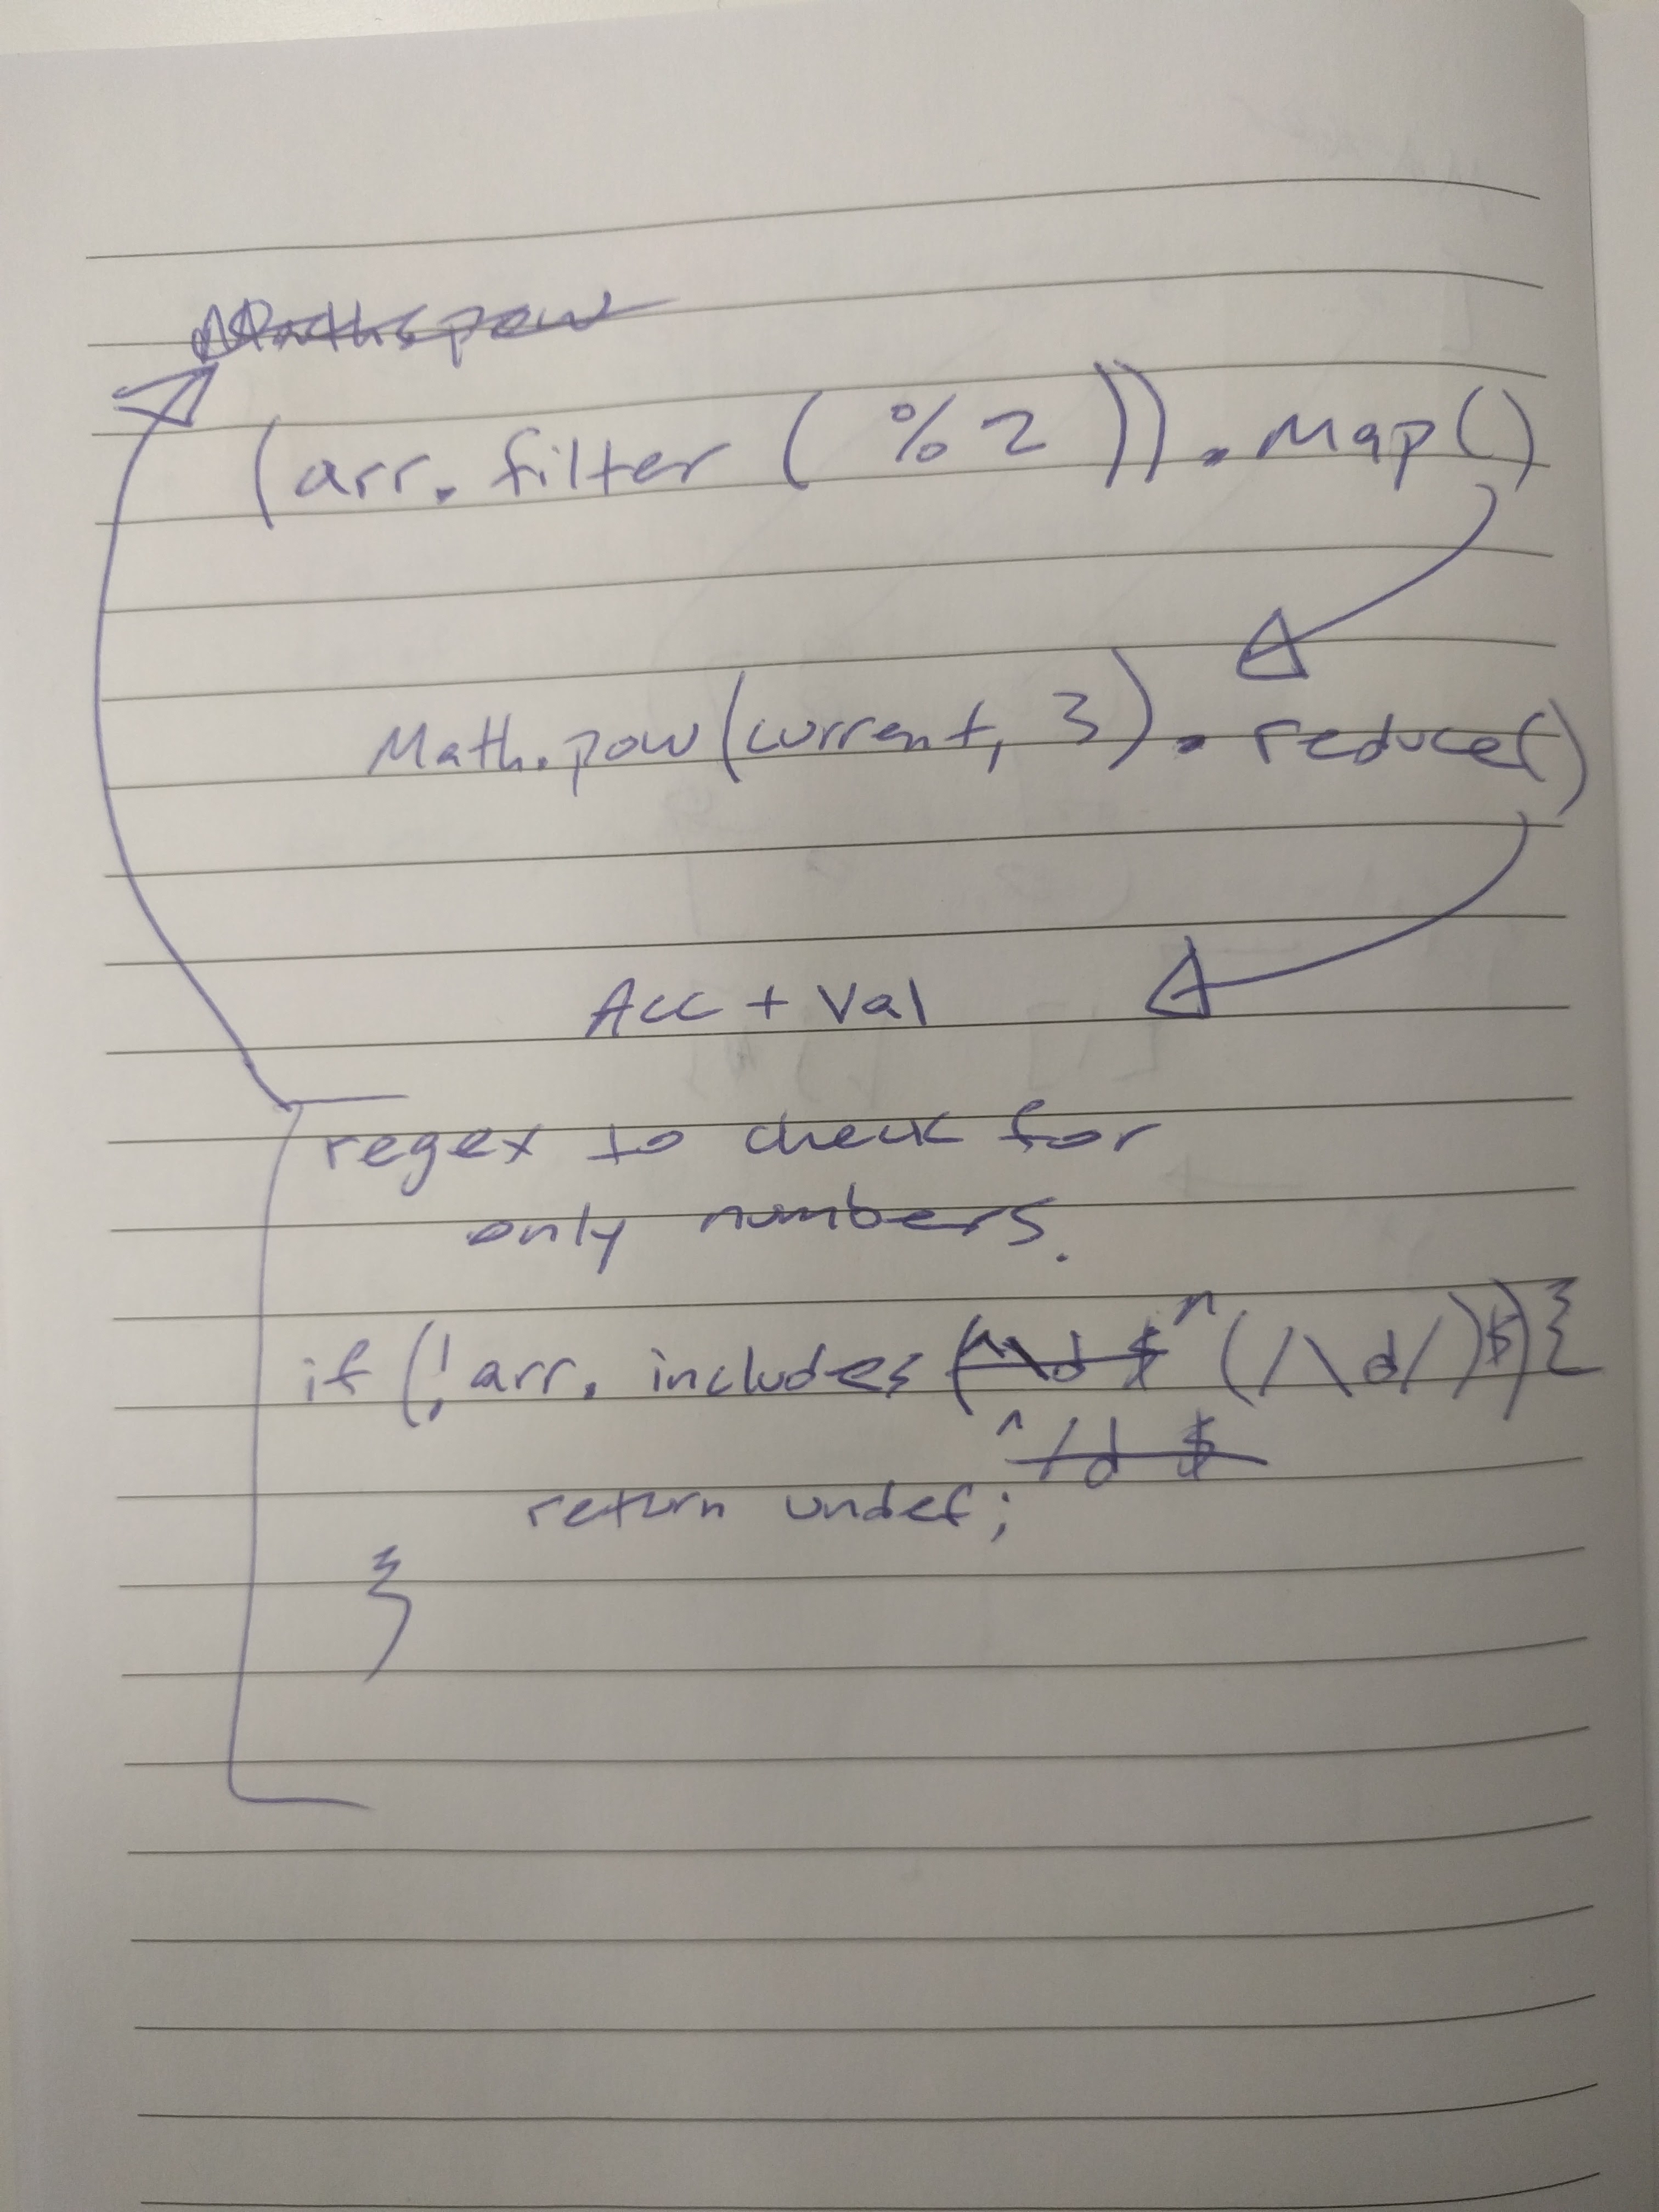 Math.pow
(arr.filter ( %2 )).Map()
Math.pow(current, 3).reduce()
Acc + Val
regex to check for
only numbers.
if (!arr.includes (^\d $ ^(/\d/)$){
^/d $
return undef;
}